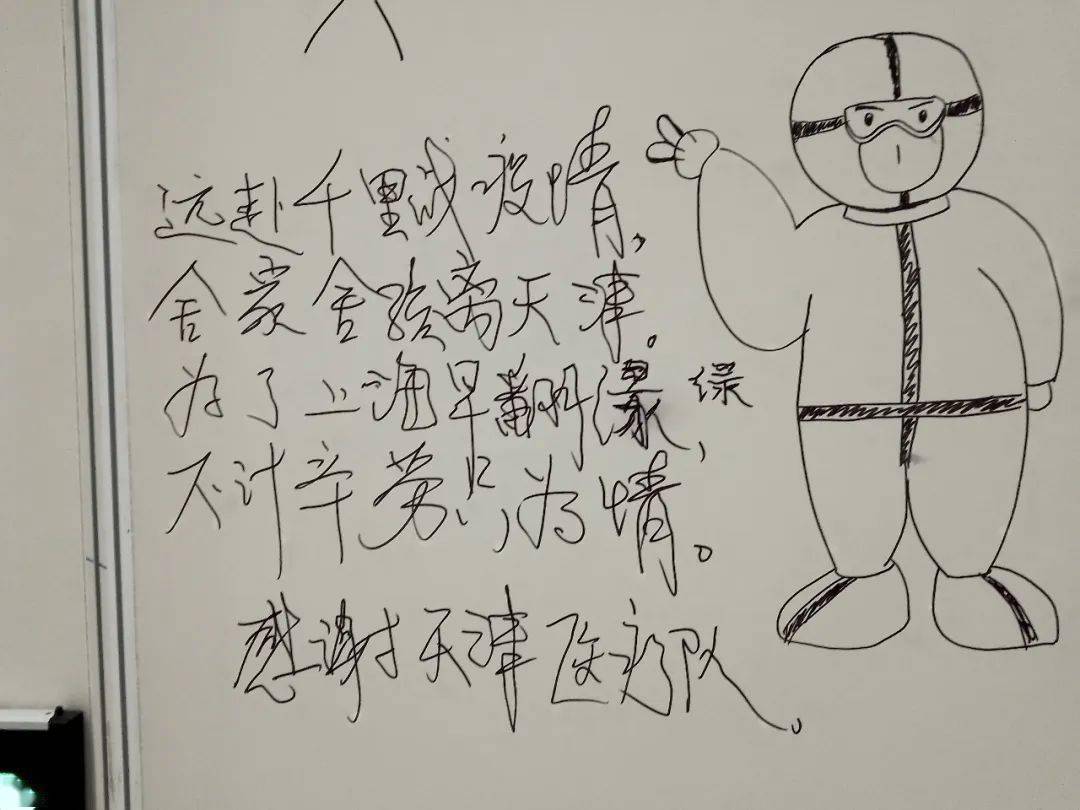 远赴千里战疫情,
舍家舍孩离天津。
为了上海早翻绿,
不计辛劳只为情。
感谢天津医疗队。